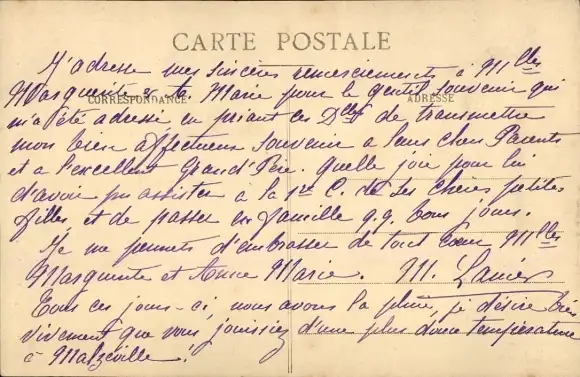 CARTE POSTALE
J'adresse mes sincères remerciements à Mlles
Marguerite & Marie pour le gentil souvenir qui
CORRESPONDANCE
ADRESSE
m'a été adressé en priant ces Dlles de transmettre
mon bien affectueux souvenir à leurs chers Parents
et à l'excellent Grand'Père. Quelle joie pour lui
d'avoir pu assister à la 1re C. de ses chères petites
filles et de passer en famille q.q. bons jours.
Je me permets d'embrasser de tout cœur Mlles
Marguerite et Anne Marie. M.
Tous ces jours-ci, nous avons la pluie, je désire bien
vivement que vous jouissiez d'une plus douce température
à Malzéville!